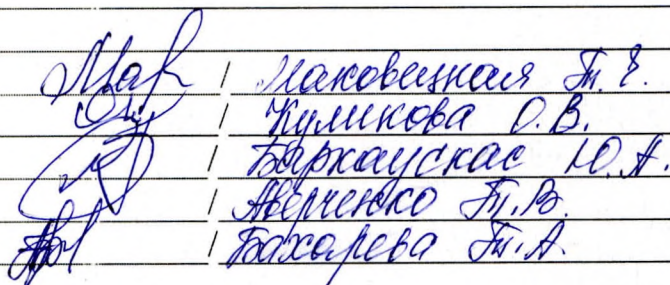 / Маковецкая Т. Е.
/ Куликова О. В.
/ Баркаускас Ю. А.
/ Аверченко Т. В.
/ Бахарева Т. А.